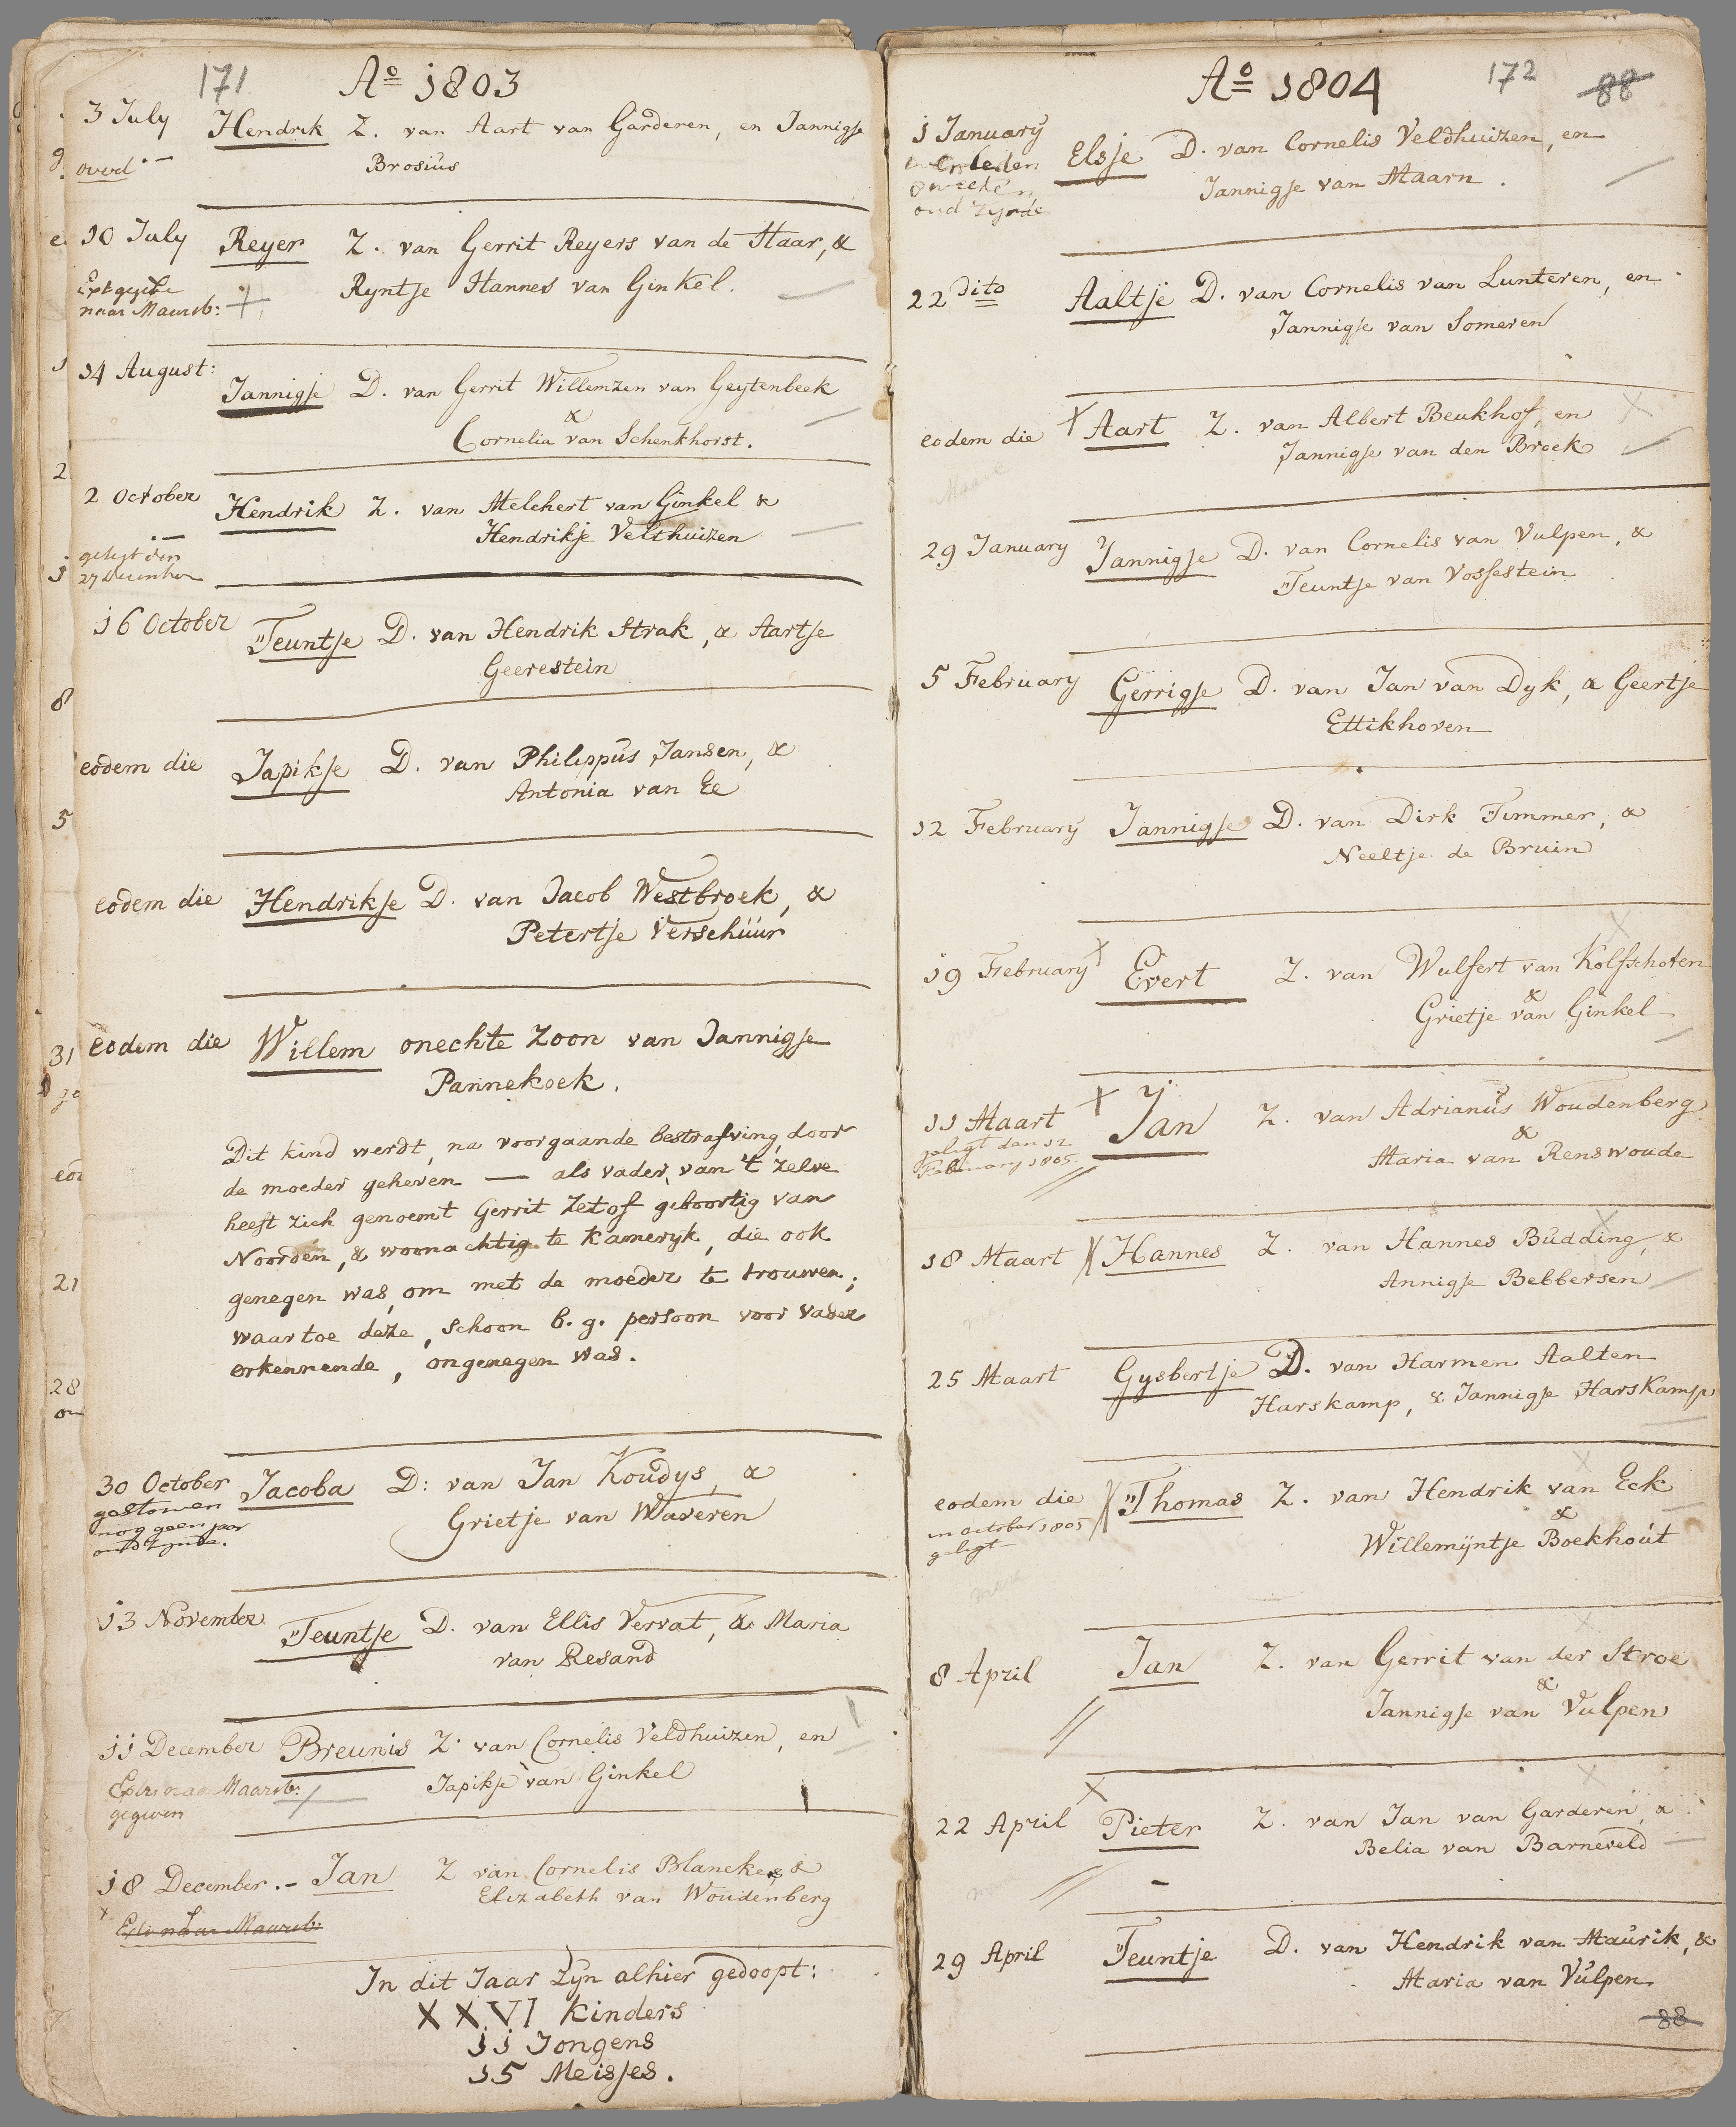 171
Ao 1803
3 July Hendrik Z. van Aart van Garderen, en Jannigje
overl
Brosius
10 July Reyer Z. van Gerrit Reyers van de Haar, &
Ryntje Hannes van Ginkel.
naar Maarsb:
14 August: Jannigje D. van Gerrit Willemzen van Geytenbeek
&
Cornelia van Schenkhorst.
2 October Hendrik Z. van Melchert van Ginkel &
Hendrikje Velthuizen
gelegt den
27 December
16 October Teuntje D. van Hendrik Strak, & Aartje
Geerestein
eodem die Japikje D. van Philippus Jansen, &
Antonia van Ee
eodem die Hendrikje D. van Jacob Westbroek, &
Petertje Verschuur
eodem die Willem onechte zoon van Jannigje
Pannekoek.
Dit kind werdt, na voorgaande bestraffing, door
de moeder geheven — als vader, van 't zelve
heeft zich genoemt Gerrit Zetof geboortig van
Noorden, & woonachtig te Kameryk, die ook
genegen was, om met de moeder te trouwen;
waartoe deze, schoon b. g. persoon voor vader
erkennende, ongenegen was.
30 October Jacoba D: van Jan Koudys, &
gestorven
nog geen jaar
oud zynde.
Grietje van Waveren
13 November Teuntje D. van Ellis Vervat, & Maria
van Resand
11 December Breunis Z. van Cornelis Veldhuizen, en
Japikje van Ginkel
naar Maarsb:
gegeven
18 December.- Jan Z van Cornelis Blancke, &
Elizabeth van Woudenberg
naar Maarsb:
In dit Jaar zyn alhier gedoopt:
XXVI Kinders
11 Jongens
15 Meisjes.
Ao 1804
172
88
1 January Elsje D. van Cornelis Veldhuizen, en
overleden
oud zynde
Jannigje van Maarn.
22 Dito Aaltje D. van Cornelis van Lunteren, en
Jannigje van Someren
eodem die Aart Z. van Albert Beukhof, en
Jannigje van den Broek
29 January Jannigje D. van Cornelis van Vulpen, &
Teuntje van Vossestein
5 February Gerrigje D. van Jan van Dyk, & Geertje
Ettikhoven
12 February Jannigje D. van Dirk Timmer, &
Neeltje de Bruin
19 February Evert Z. van Wulfert van Kolfschoten
&
Grietje van Ginkel
11 Maart Jan Z. van Adrianus Woudenberg
gelegt den 12
February 1805
&
Maria van Renswoude
18 Maart Hannes Z. van Hannes Budding, &
Annigje Bebbersen
25 Maart Gysbertje D. van Harmen Aalten
Harskamp, & Jannigje Harskamp
eodem die Thomas Z. van Hendrik van Eck
in october 1805
gelegt
&
Willemijntje Boekhout
8 April Jan Z. van Gerrit van der Stroe
&
Jannigje van Vulpen
22 April Pieter Z. van Jan van Garderen, &
Belia van Barneveld
29 April Teuntje D. van Hendrik van Maurik, &
Maria van Vulpen.
88